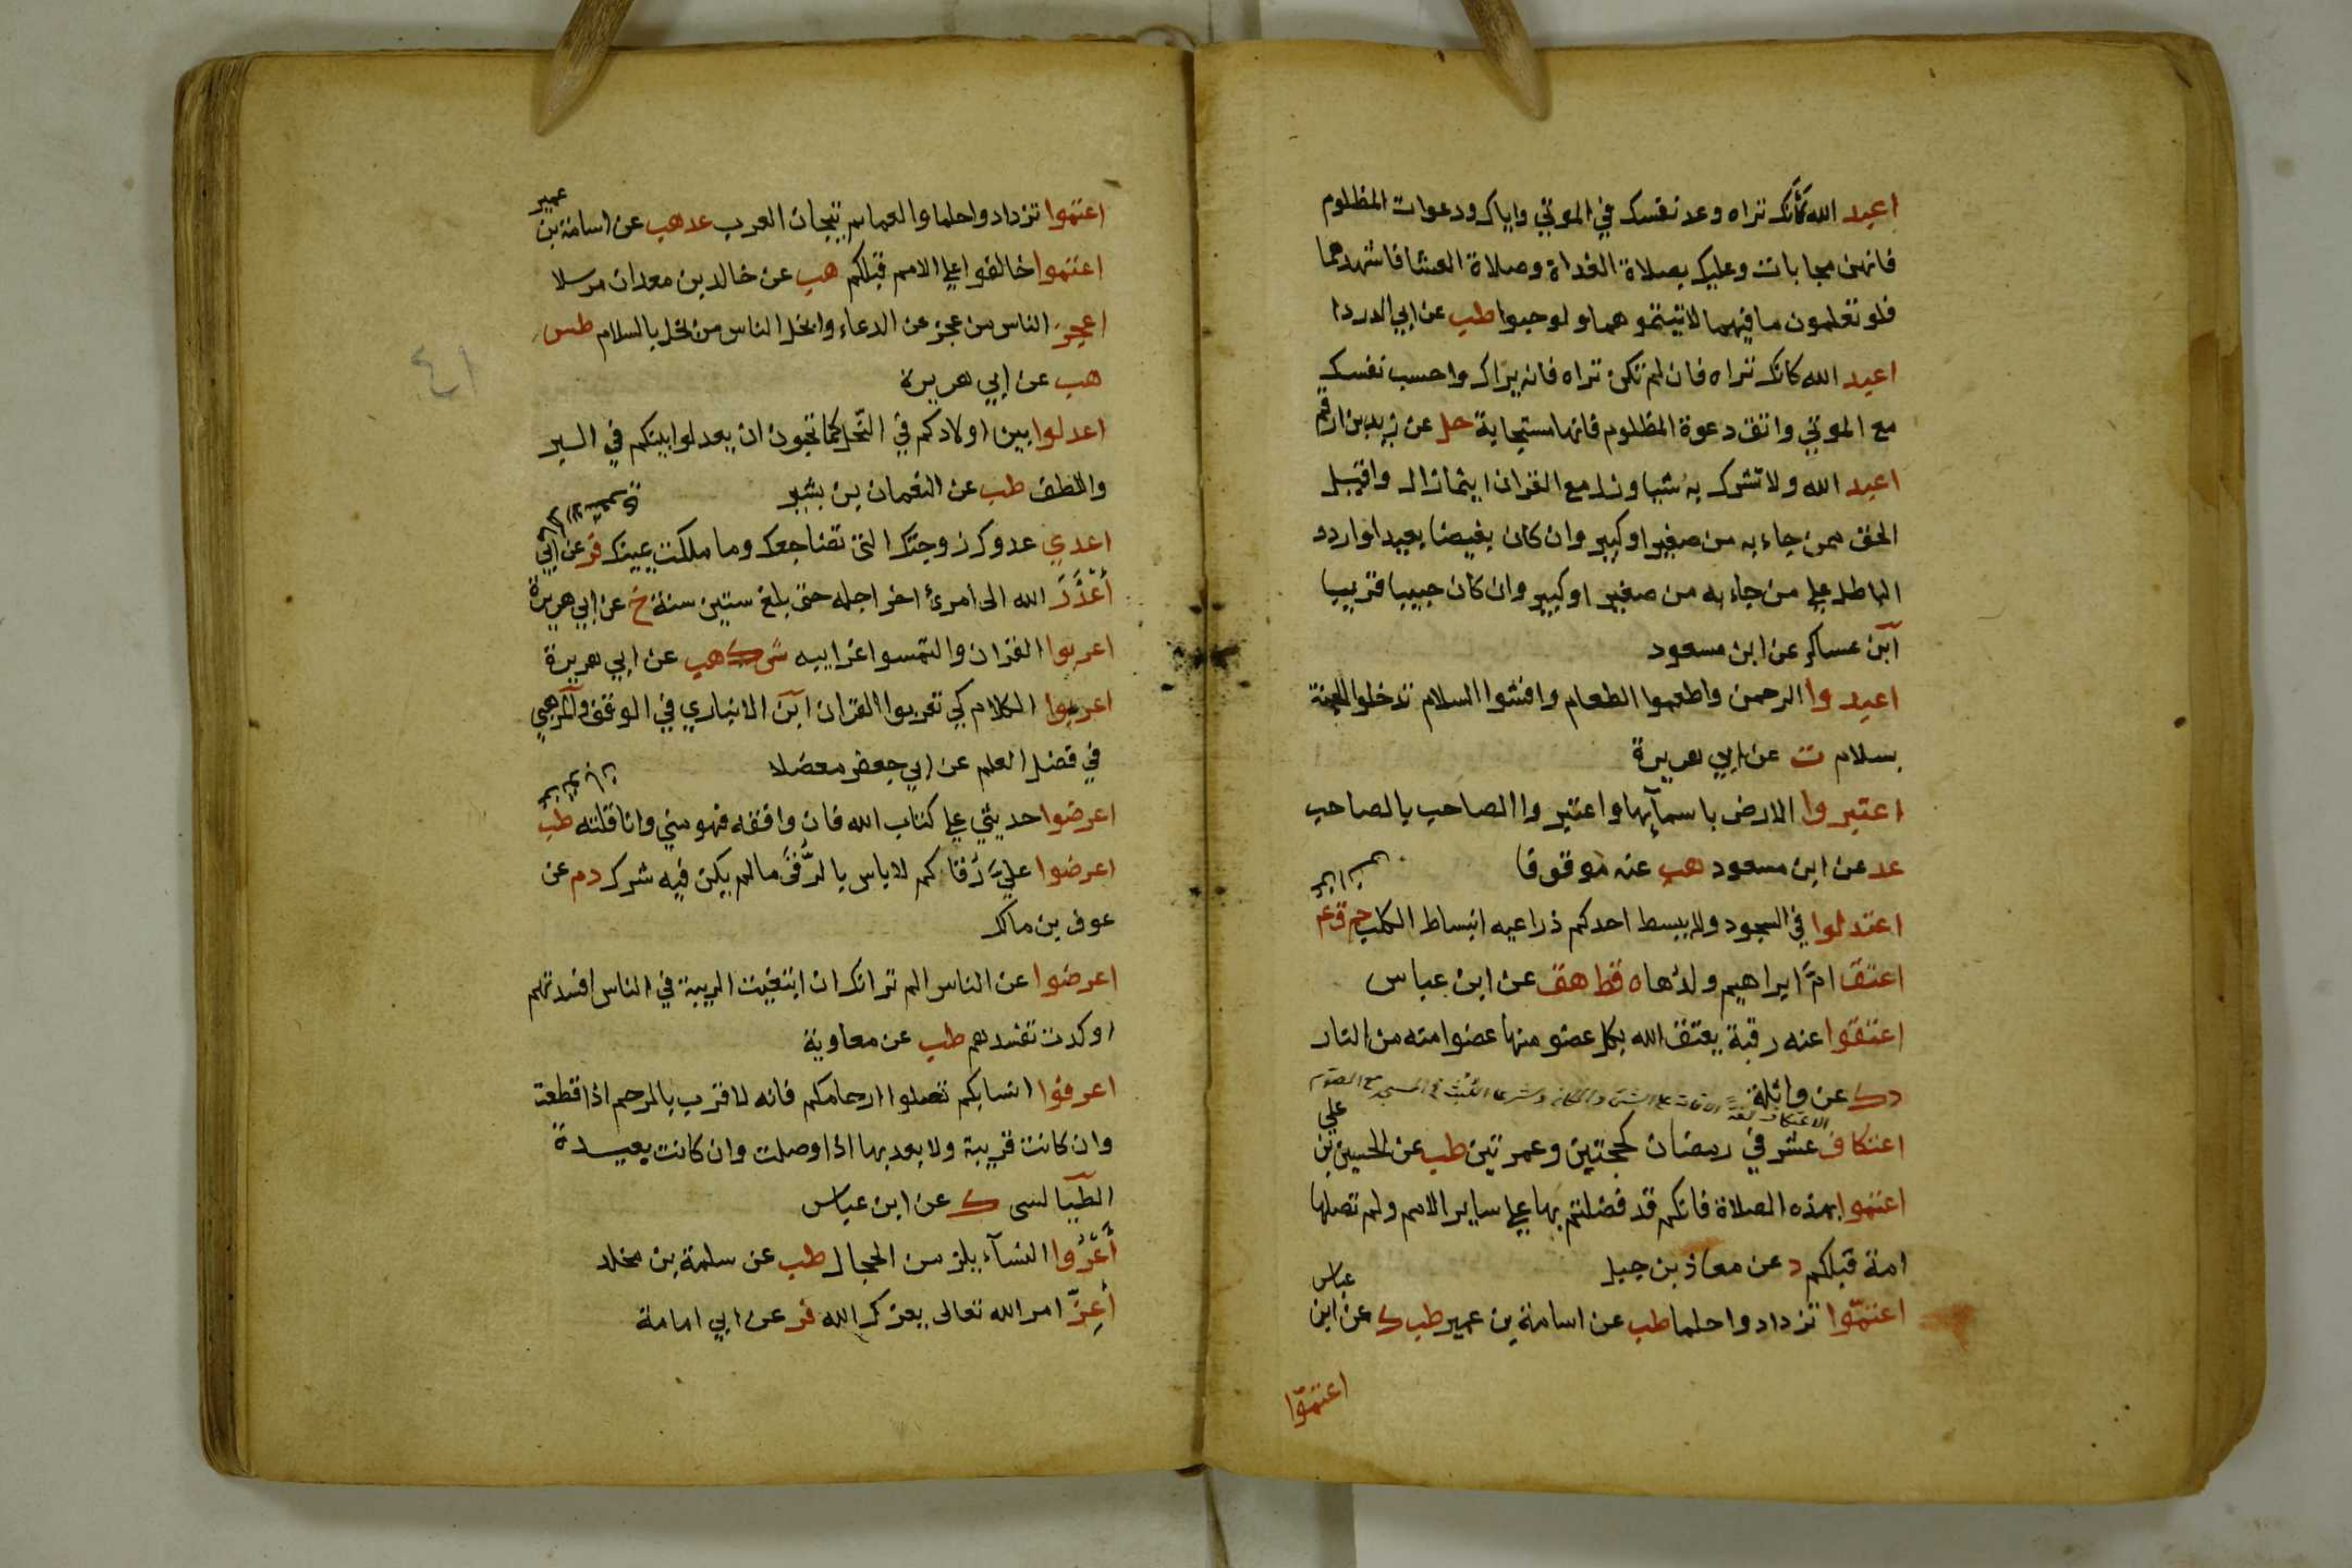 اعبد الله كأنك تراه وعد نفسك في الموتي واياك ودعوات المظلوم
فانهن مجابات وعليك بصلاة الغداة وصلاة العشا فاشهدهما
فلو تعلمون ما فيهما لاتيتموهما ولو حبوا طب عن ابي الدردا
اعبد الله كانك تراه فان لم تكن تراه فانه يراك واحسب نفسك
مع الموتي واتق دعوة المظلوم فانها مستجابة حل عن زيد بن ارقم
اعبد الله ولا تشرك به شيا وزل مع القران اينما زال واقبل
الحق ممن جاء به من صغير او كبير وان كان بغيضا بعيدا واردد
الباطل علي من جاء به من صغير او كبير وان كان حبيبا قريبا
ابن عساكر عن ابن مسعود
اعبدوا الرحمن واطعموا الطعام وافشوا السلام تدخلوا الجنة
بسلام ت عن ابي هريرة
اعتبروا الارض باسمآيها واعتبروا الصاحب بالصاحب
عد عن ابن مسعود هب عنه موقوفا
اعتدلوا في السجود ولا يبسط احدكم ذراعيه انبساط الكلب حم ق عم
اعتق امَّ ابراهيم ولدُها ه قط هق عن ابن عباس
اعتقوا عنه رقبة يعتق الله بكل عضو منها عضوا منه من النار
د ك عن واثلة
الاعتكاف لغة
اعتكاف عشر في رمضان كحجتين وعمرتين طب عن الحسين بن علي
اعتموا بهذه الصلاة فانكم قد فضلتم بها علي ساير الامم ولم تصلها
امة قبلكم د عن معاذ بن جبل
اعتمّوا تزدادوا حلما طب عن اسامة بن عمير طب ك عن ابن عباس
اعتمّوا
اعتموا تزدادوا حلما والعمايم تيجان العرب عد هب عن اسامة بن عمير
اعتموا خالفوا علي الامم قبلكم هب عن خالد بن معدان مرسلا
اعجز الناس من عجز عن الدعاء وابخل الناس من بخل بالسلام طس
هب عن ابي هريرة
٤١
اعدلوا بين اولادكم في النحل كما تحبون ان يعدلوا بينكم في البر
واللطف طب عن النعمان بن بشير
اعدي عدوك زوجتك التي تضاجعك وما ملكت يمينك فر عن ابي
أَعْذَرَ الله الى امرئ اخر اجله حتى بلغ ستين سنة خ عن ابي هريرة
اعربوا القران والتمسوا غرايبه ش ك هب عن ابي هريرة
اعربوا الكلام كي تعربوا القران ابن الانباري في الوقف والمرهبي
في فضل العلم عن ابي جعفر معضلا
اعرضوا حديثي علي كتاب الله فان وافقه فهو مني وانا قلته طب
اعرضوا عليَّ رُقاكم لا باس بالرُّقى ما لم يكن فيه شرك د م عن
عوف بن مالك
اعرضوا عن الناس الم تر انك ان ابتغيت الريبة في الناس افسدتهم
او كدت تفسدهم طب عن معاوية
اعرفوا انسابكم تصلوا ارحامكم فانه لا قرب بالرحم اذا قطعت
وان كانت قريبة ولا بعد بها اذا وصلت وان كانت بعيدة
الطيالسى ك عن ابن عباس
أَعْرُوا النسآء يلزمن الحجال طب عن سلمة بن مخلد
أَعِزّ امر الله تعالى يعزك الله فر عن ابي امامة